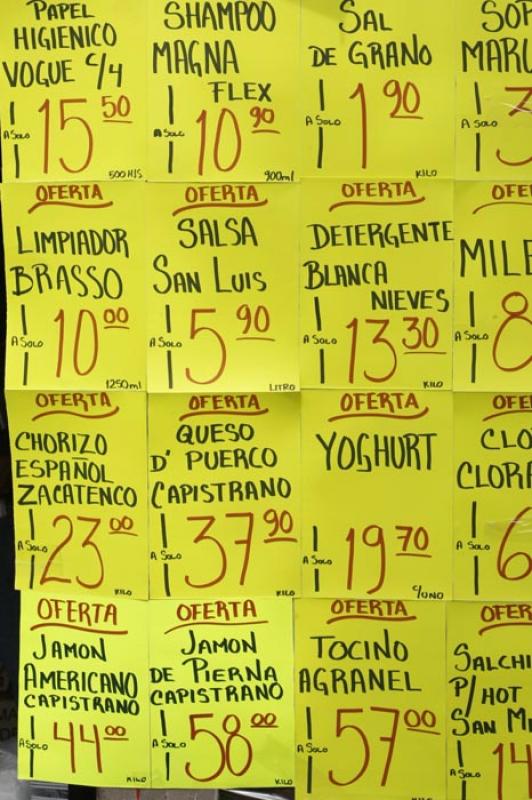 PAPEL
HIGIENICO
VOGUE C/4
A SOLO 15 50
500 HJS
SHAMPOO
MAGNA
FLEX
A SOLO 10 90
900ml
SAL
DE GRANO
A SOLO 1 90
KILO
A SOLO
OFERTA
LIMPIADOR
BRASSO
A SOLO 10 00
1250ml
OFERTA
SALSA
SAN LUIS
A SOLO 5 90
LITRO
OFERTA
DETERGENTE
BLANCA
NIEVES
A SOLO 13 30
KILO
A SOLO 8
OFERTA
CHORIZO
ESPAÑOL
ZACATENCO
A SOLO 23 00
KILO
OFERTA
QUESO
D' PUERCO
CAPISTRANO
A SOLO 37 90
KILO
OFERTA
YOGHURT
A SOLO 19 70
C/UNO
A SOLO 6
OFERTA
JAMON
AMERICANO
CAPISTRANO
A SOLO 44 00
KILO
OFERTA
JAMON
DE PIERNA
CAPISTRANO
A SOLO 58 00
KILO
OFERTA
TOCINO
AGRANEL
A SOLO 57 00
KILO
P/ HOT
SAN
A SOLO 14